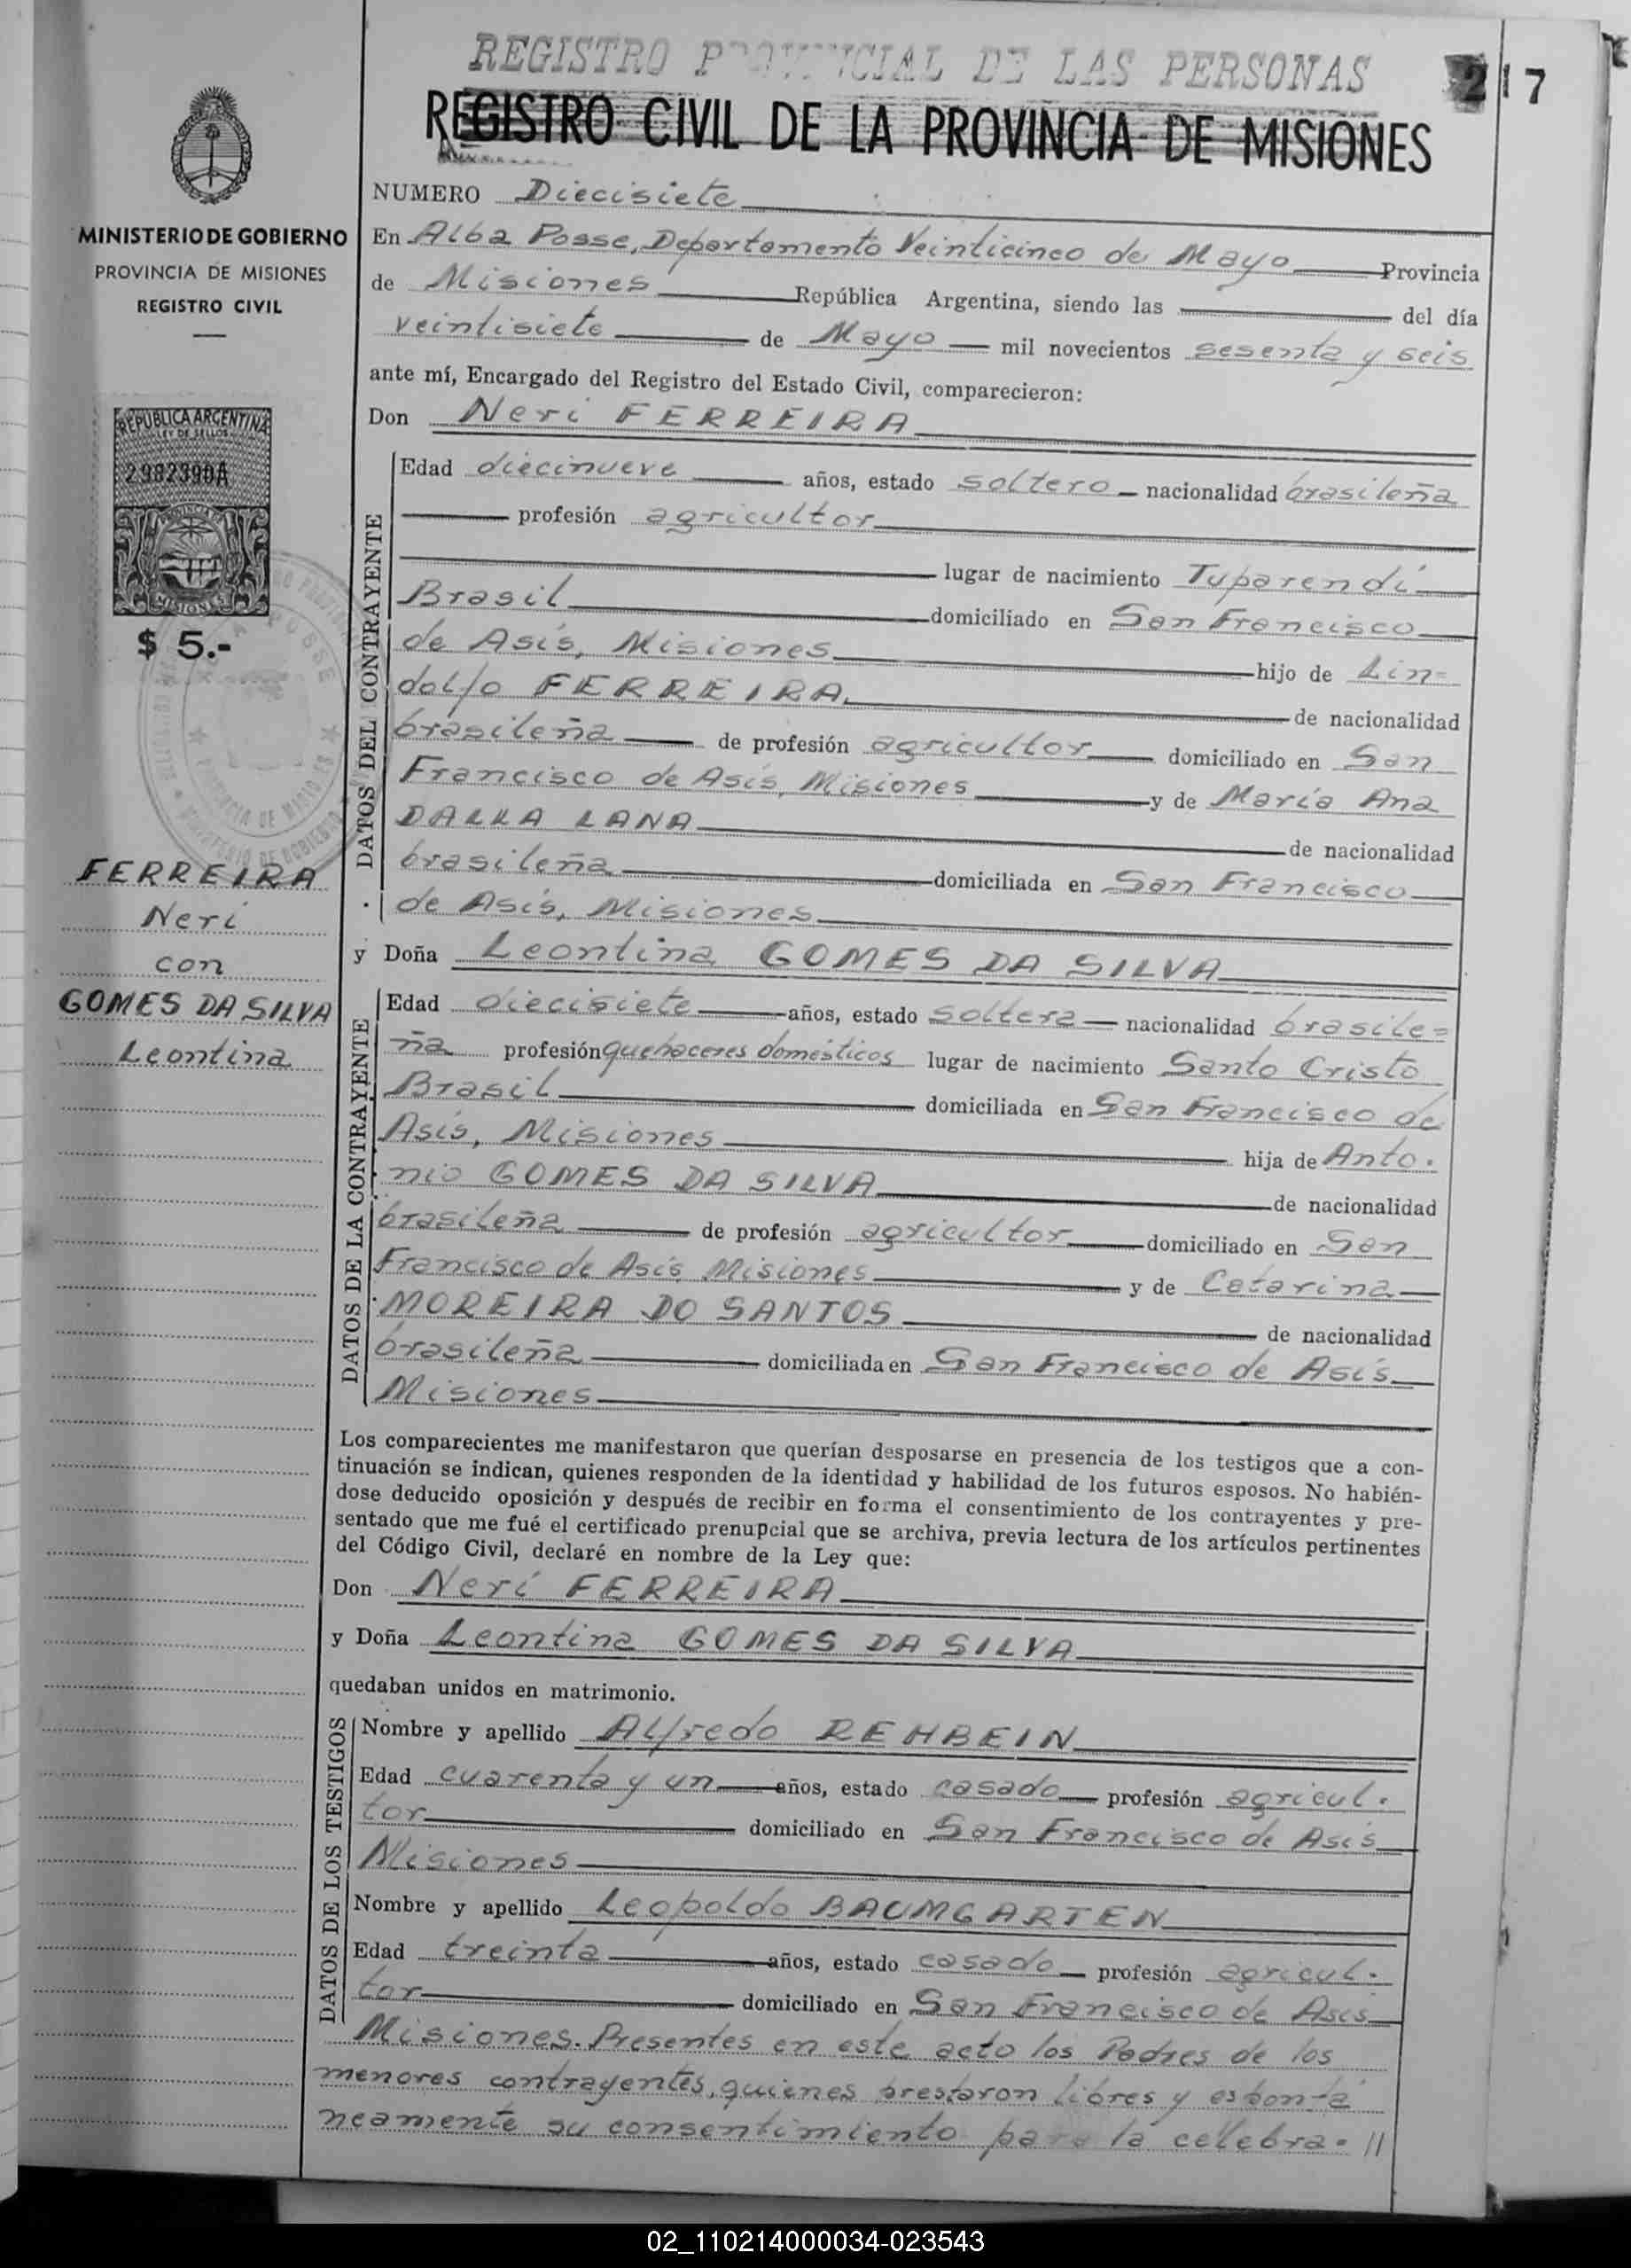 REGISTRO PROVINCIAL DE LAS PERSONAS
217
REGISTRO CIVIL DE LA PROVINCIA DE MISIONES
MINISTERIO DE GOBIERNO
PROVINCIA DE MISIONES
REGISTRO CIVIL
REPUBLICA ARGENTINA
LEY DE SELLOS
2982390A
MISIONES
$ 5.-
FERREIRA
Neri
con
GOMES DA SILVA
Leontina
NUMERO Diecisiete
En Alba Posse, Departamento Veinticinco de Mayo Provincia
de Misiones República Argentina, siendo las del día
veintisiete de Mayo mil novecientos sesenta y seis
ante mí, Encargado del Registro del Estado Civil, comparecieron:
Don Neri FERREIRA
DATOS DEL CONTRAYENTE
Edad diecinueve años, estado soltero nacionalidad brasileña
profesión agricultor
lugar de nacimiento Tuparendí
Brasil domiciliado en San Francisco
de Asís, Misiones hijo de Lin=
dolfo FERREIRA, de nacionalidad
brasileña de profesión agricultor domiciliado en San
Francisco de Asís, Misiones y de María Ana
DALLA LANA de nacionalidad
brasileña domiciliada en San Francisco
de Asís, Misiones
y Doña Leontina GOMES DA SILVA
DATOS DE LA CONTRAYENTE
Edad diecisiete años, estado soltera nacionalidad brasile=
ña profesión quehaceres domésticos lugar de nacimiento Santo Cristo
Brasil domiciliada en San Francisco de
Asís, Misiones hija de Anto-
nio GOMES DA SILVA de nacionalidad
brasileña de profesión agricultor domiciliado en San
Francisco de Asís Misiones y de Catarina
MOREIRA DO SANTOS de nacionalidad
brasileña domiciliada en San Francisco de Asís
Misiones
Los comparecientes me manifestaron que querían desposarse en presencia de los testigos que a con-
tinuación se indican, quienes responden de la identidad y habilidad de los futuros esposos. No habién-
dose deducido oposición y después de recibir en forma el consentimiento de los contrayentes y pre-
sentado que me fué el certificado prenupcial que se archiva, previa lectura de los artículos pertinentes
del Código Civil, declaré en nombre de la Ley que:
Don Nerí FERREIRA
y Doña Leontina GOMES DA SILVA
quedaban unidos en matrimonio.
DATOS DE LOS TESTIGOS
Nombre y apellido Alfredo REHBEIN
Edad cuarenta y un años, estado casado profesión agricul-
tor domiciliado en San Francisco de Asís
Misiones
Nombre y apellido Leopoldo BAUMGARTEN
Edad treinta años, estado casado profesión agricul-
tor domiciliado en San Francisco de Asís
Misiones. Presentes en este acto los Padres de los
menores contrayentes, quienes prestaron libres y espontá
neamente su consentimiento para la celebra- //
02_110214000034-023543